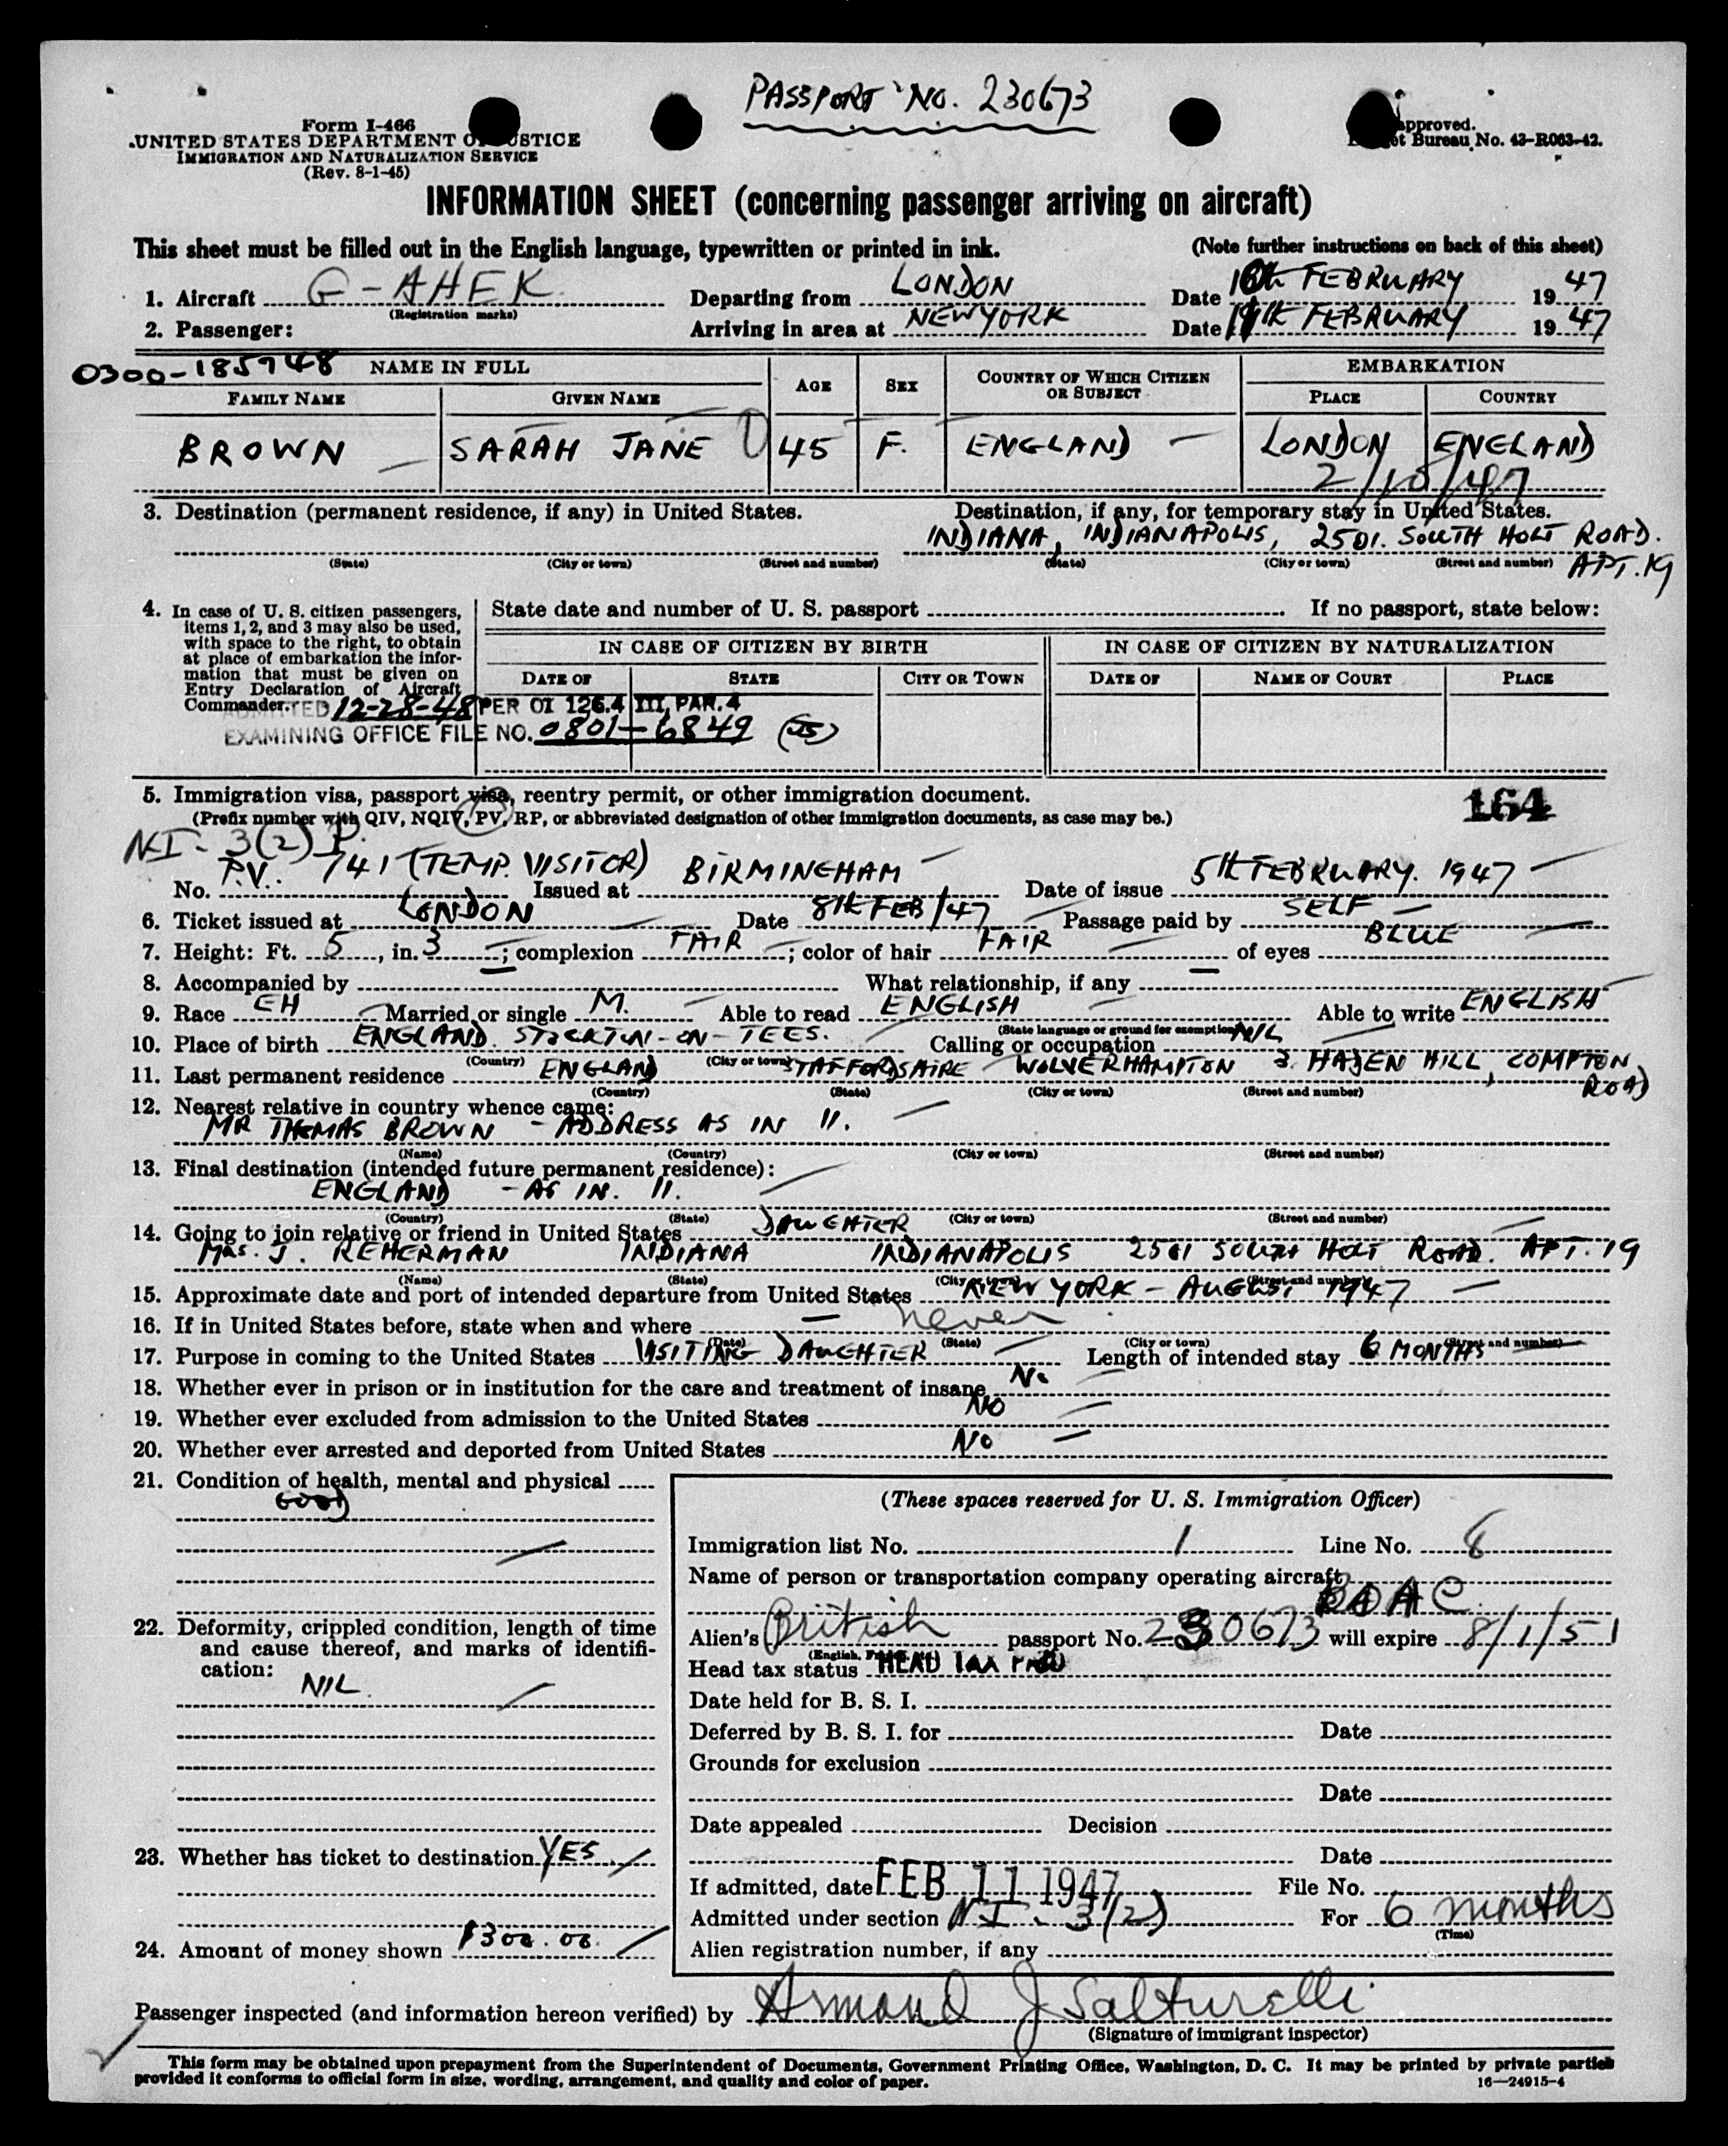 PASSPORT NO. 230673
Form I-466
UNITED STATES DEPARTMENT OF JUSTICE
IMMIGRATION AND NATURALIZATION SERVICE
(Rev. 8-1-45)
approved.
Bureau No. 43-R063-42.
INFORMATION SHEET (concerning passenger arriving on aircraft)
This sheet must be filled out in the English language, typewritten or printed in ink. (Note further instructions on back of this sheet)
1. Aircraft G-AHEK (Registration marks) Departing from LONDON Date FEBRUARY 1947
2. Passenger: Arriving in area at NEW YORK Date FEBRUARY 1947
0300-185948 NAME IN FULL AGE SEX COUNTRY OF WHICH CITIZEN OR SUBJECT EMBARKATION
FAMILY NAME GIVEN NAME PLACE COUNTRY
BROWN SARAH JANE 45 F. ENGLAND LONDON ENGLAND
2/10/47
3. Destination (permanent residence, if any) in United States. Destination, if any, for temporary stay in United States.
INDIANA, INDIANAPOLIS, 2501. SOUTH HOLT ROAD. APT. 19
(State) (City or town) (Street and number) (State) (City or town) (Street and number)
4. In case of U. S. citizen passengers, items 1, 2, and 3 may also be used, with space to the right, to obtain at place of embarkation the information that must be given on Entry Declaration of Aircraft Commander.
State date and number of U. S. passport If no passport, state below:
IN CASE OF CITIZEN BY BIRTH IN CASE OF CITIZEN BY NATURALIZATION
DATE OF STATE CITY OR TOWN DATE OF NAME OF COURT PLACE
ADMITTED 12-28-48 PER OI 126.4 III, PAR. 4
EXAMINING OFFICE FILE NO. 0801-6849
5. Immigration visa, passport visa, reentry permit, or other immigration document. 164
(Prefix number with QIV, NQIV, PV, RP, or abbreviated designation of other immigration documents, as case may be.)
NI- 3(2) P.
No. P.V. 741 (TEMP. VISITOR) Issued at BIRMINGHAM Date of issue 5th FEBRUARY. 1947
6. Ticket issued at LONDON Date 8th FEB/47 Passage paid by SELF
7. Height: Ft. 5, in. 3; complexion FAIR; color of hair FAIR of eyes BLUE
8. Accompanied by — What relationship, if any —
9. Race EH Married or single M. Able to read ENGLISH Able to write ENGLISH
(State language or ground for exemption)
10. Place of birth ENGLAND. STOCKTON-ON-TEES. Calling or occupation NIL
(Country) (City or town)
11. Last permanent residence ENGLAND STAFFORDSHIRE WOLVERHAMPTON 3. HADEN HILL, COMPTON ROAD
(Country) (State) (City or town) (Street and number)
12. Nearest relative in country whence came:
MR THOMAS BROWN - ADDRESS AS IN 11.
(Name) (Country) (City or town) (Street and number)
13. Final destination (intended future permanent residence):
ENGLAND - AS IN. 11.
(Country) (State) (City or town) (Street and number)
14. Going to join relative or friend in United States DAUGHTER
MRS. J. REHERMAN INDIANA INDIANAPOLIS 2501 SOUTH HOLT ROAD. APT. 19
(Name) (State) (City or town) (Street and number)
15. Approximate date and port of intended departure from United States NEW YORK - AUGUST 1947
16. If in United States before, state when and where — never
(Date) (State) (City or town) (Street and number)
17. Purpose in coming to the United States VISITING DAUGHTER Length of intended stay 6 MONTHS
18. Whether ever in prison or in institution for the care and treatment of insane No
19. Whether ever excluded from admission to the United States NO
20. Whether ever arrested and deported from United States No
21. Condition of health, mental and physical
GOOD
22. Deformity, crippled condition, length of time and cause thereof, and marks of identification:
NIL.
23. Whether has ticket to destination YES
24. Amount of money shown $300.00
(These spaces reserved for U. S. Immigration Officer)
Immigration list No. 1 Line No. 8
Name of person or transportation company operating aircraft
BOAC
Alien's British passport No. 230673 will expire 8/1/51
Head tax status HEAD Tax PAID
Date held for B. S. I.
Deferred by B. S. I. for Date
Grounds for exclusion
Date
Date appealed Decision
Date
If admitted, date FEB 11 1947 File No.
Admitted under section NI-3(2) For 6 months
(Time)
Alien registration number, if any
Passenger inspected (and information hereon verified) by Armand J Salturelli
(Signature of immigrant inspector)
This form may be obtained upon prepayment from the Superintendent of Documents, Government Printing Office, Washington, D. C. It may be printed by private parties
provided it conforms to official form in size, wording, arrangement, and quality and color of paper. 16—24915-4